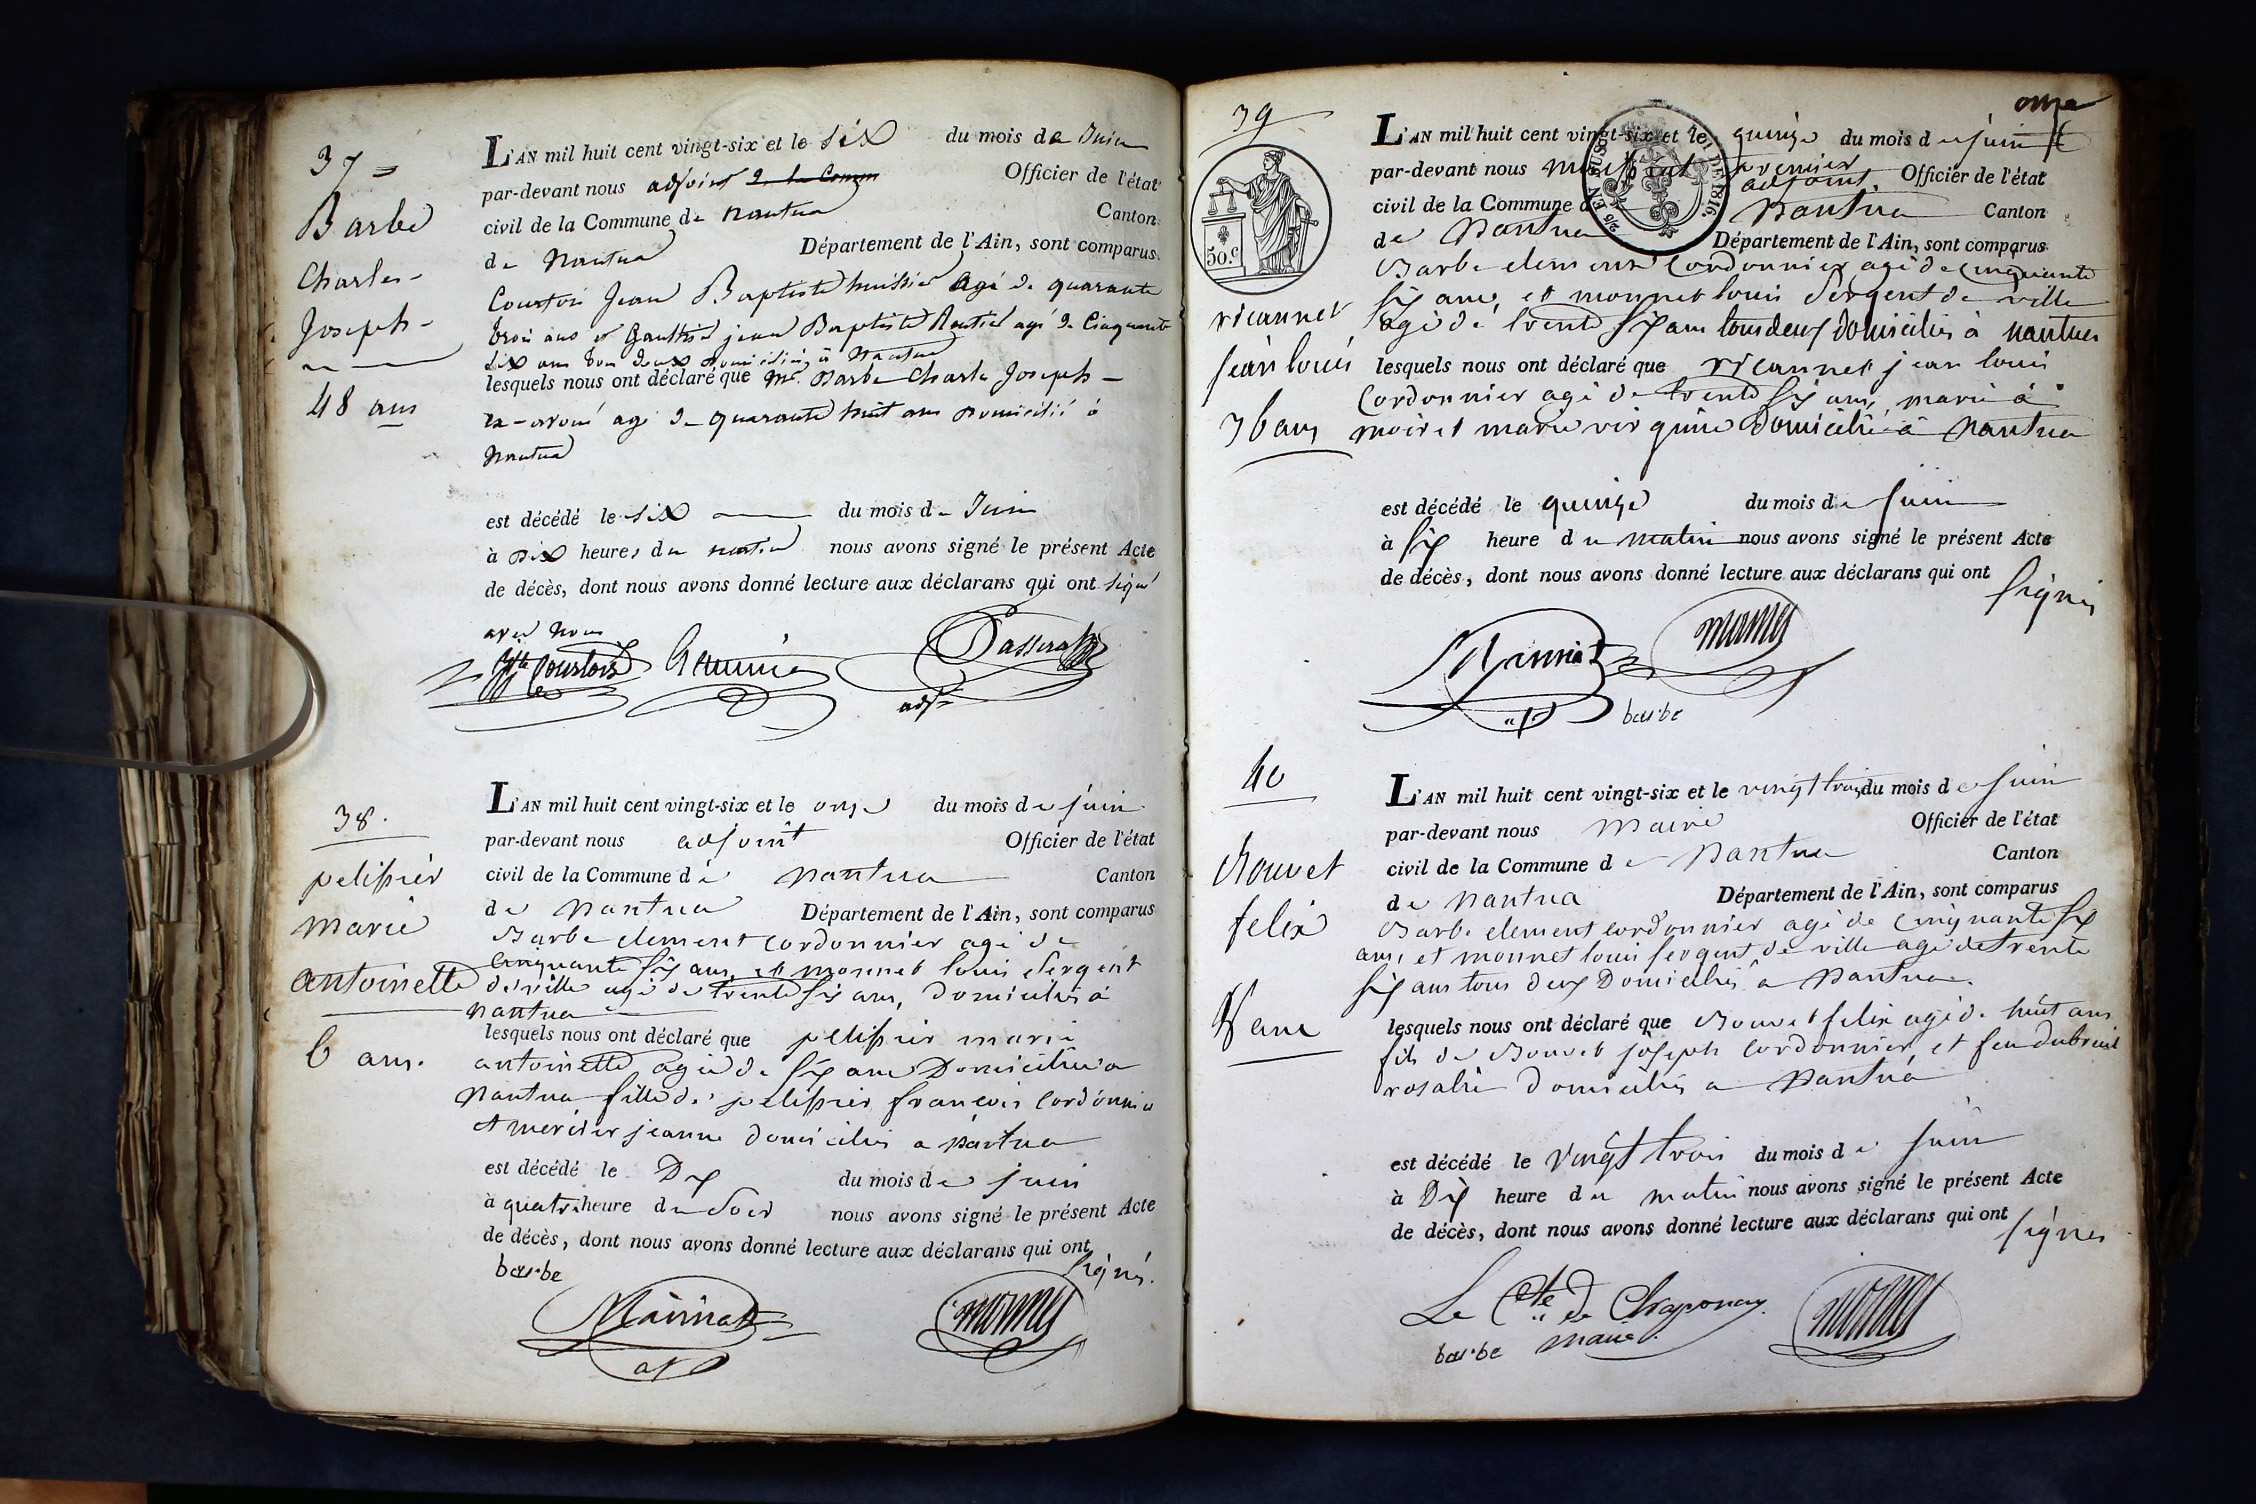 37
Barbe
Charles
Joseph
48 ans
L'AN mil huit cent vingt-six et le six du mois de Juin
par-devant nous adjoint de la Comm Officier de l'état
civil de la Commune de Nantua Canton
de Nantua Département de l'Ain, sont comparus
Courtois Jean Baptiste huissier agé de quarante
trois ans et Gauthier jean Baptiste Rentier agé de Cinquante
six ans tous deux domiciliés à Nantua
lesquels nous ont déclaré que Mr. Barbe Charles Joseph
ex-avoué agé de quarante huit ans domicilié à
Nantua
est décédé le six du mois de Juin
à dix heures du matin nous avons signé le présent Acte
de décès, dont nous avons donné lecture aux déclarans qui ont signé
avec nous
Courtois Passerat
adjt
38.
pelissier
marie
antoinette
6 ans.
L'AN mil huit cent vingt-six et le onze du mois de juin
par-devant nous adjoint Officier de l'état
civil de la Commune de nantua Canton
de nantua Département de l'Ain, sont comparus
Barbe clement cordonnier agé de
cinquante six ans, et monnet louis sergent
de ville agé de trente six ans, domiciliés à
nantua
lesquels nous ont déclaré que pelissier marie
antoinette agée de six ans Domiciliée a
nantua fille de pelissier françois cordonnier
et mercier jeanne domiciliés a nantua
est décédé le Dix du mois de juin
à quatre heure du soir nous avons signé le présent Acte
de décès, dont nous avons donné lecture aux déclarans qui ont
signés.
barbe
monnet
onze
39
50.c
LOI DE 1816.
jean louis
36 ans
L'AN mil huit cent vingt-six et le quinze du mois de juin
par-devant nous premier
adjoint Officier de l'état
civil de la Commune de Nantua Canton
de Nantua Département de l'Ain, sont comparus
Barbe clement Cordonnier agé de cinquante
six ans, et monnet louis Sergent de ville
agé de trente six ans tous deux domiciliés à nantua
lesquels nous ont déclaré que jean louis
Cordonnier agé de trente six ans, marié à
marie virginie domicilié à Nantua
est décédé le quinze du mois de juin
à six heure du matin nous avons signé le présent Acte
de décès, dont nous avons donné lecture aux déclarans qui ont
signés
monnet
barbe
40
Bouvet
felix
8 ans
L'AN mil huit cent vingt-six et le vingt trois du mois de juin
par-devant nous maire Officier de l'état
civil de la Commune de Nantua Canton
de Nantua Département de l'Ain, sont comparus
Barbe clement cordonnier agé de cinquante six
ans, et monnet louis sergent de ville agé de trente
six ans tous deux Domiciliés a Nantua
lesquels nous ont déclaré que Bouvet felix agé de huit ans
fils de Bouvet joseph cordonnier, et feu dubreuil
rosalie domiciliés a Nantua
est décédé le vingt trois du mois de juin
à Dix heure du matin nous avons signé le présent Acte
de décès, dont nous avons donné lecture aux déclarans qui ont
signés
Le Cte de Chaponay
maire
barbe
monnet